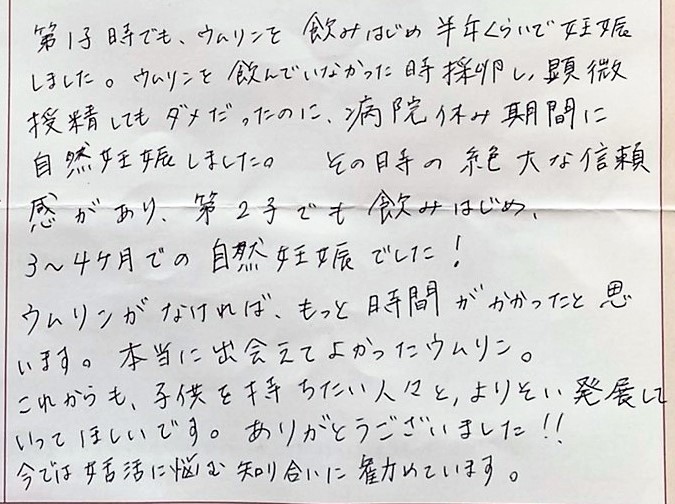 第1子時でも、ウムリンを飲みはじめ半年くらいで妊娠
しました。ウムリンを飲んでいなかった時採卵し、顕微
授精してもダメだったのに、病院休み期間に
自然妊娠しました。 その時の絶大な信頼
感があり、第2子でも飲みはじめ、
3〜4ヶ月での自然妊娠でした！
ウムリンがなければ、もっと時間がかかったと思
います。本当に出会えてよかったウムリン。
これからも、子供を持ちたい人々と、よりそい発展して
いってほしいです。ありがとうございました!!
今では妊活に悩む知り合いに勧めています。